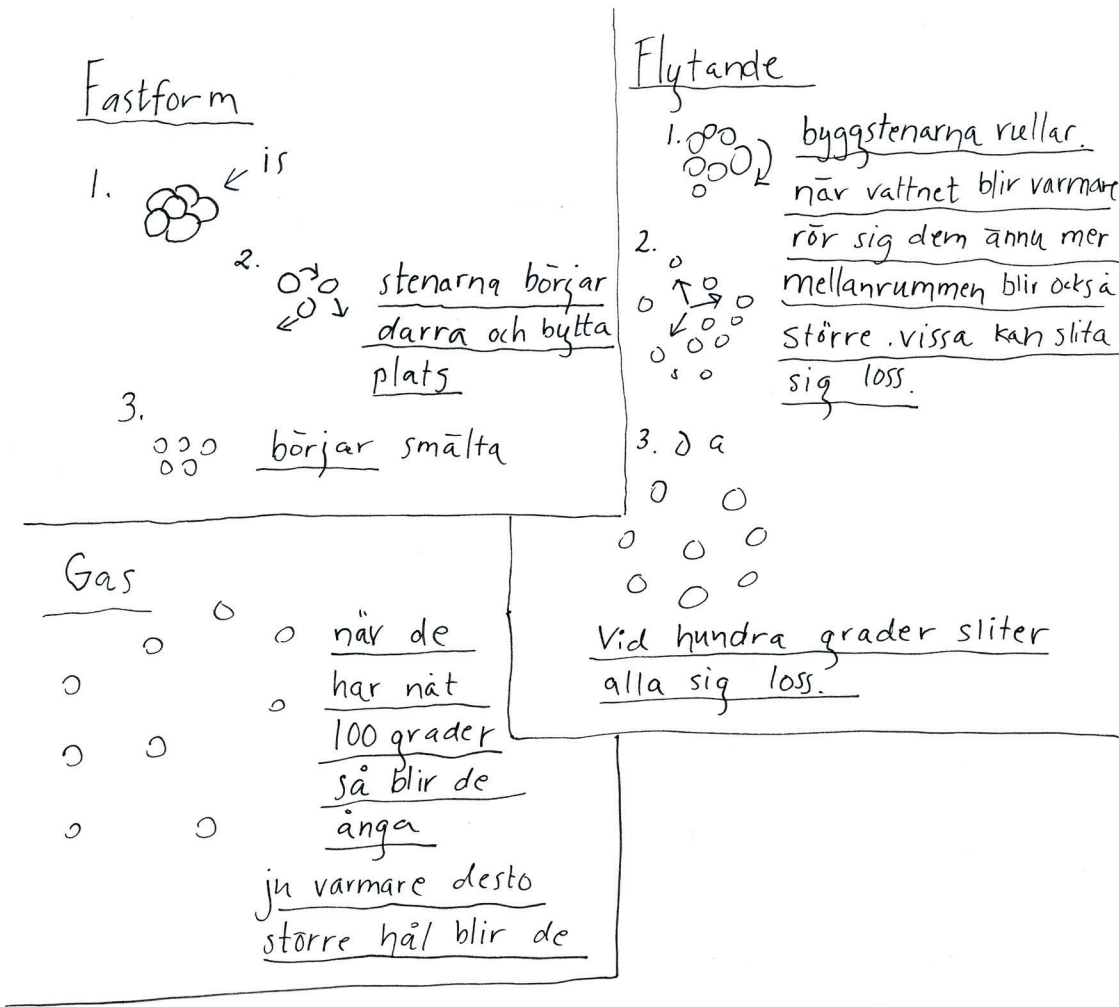 Fastform
1.
is
2.
stenarna börjar
darra och bytta
plats
3.
börjar smälta
Flytande
1.
byggstenarna rullar.
när vattnet blir varmare
rör sig dem ännu mer
2.
mellanrummen blir också
större. vissa kan slita
sig loss.
3.
Vid hundra grader sliter
alla sig loss.
Gas
när de
har nåt
100 grader
så blir de
ånga
ju varmare desto
större hål blir de